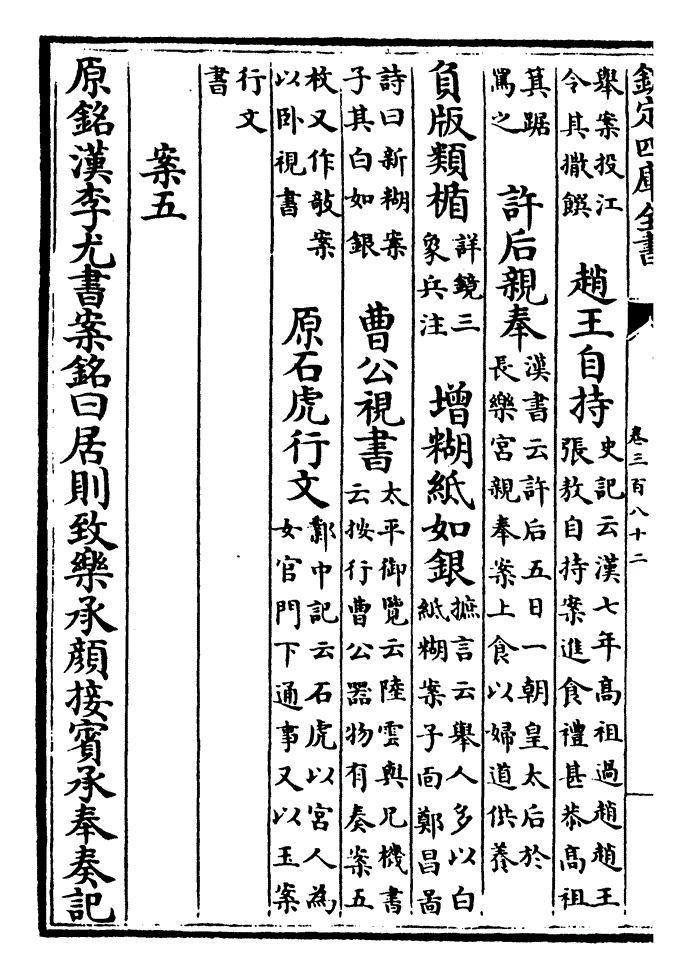 欽定四庫全書 卷三百八十二
舉案投江令其撒饌 趙王自持 史記云漢七年高祖過趙趙王張敖自持案進食禮甚恭高祖
箕踞罵之 許后親奉 漢書云許后五日一朝皇太后於長樂宮親奉案上食以婦道供養
負版類楯 詳鏡三象兵注 增糊紙如銀 摭言云舉人多以白紙糊案子面鄭昌啚
詩曰新糊案子其白如銀 曹公視書 太平御覽云陸雲與兄機書云按行曹公器物有奏案五
枚又作敧案以卧視書 原石虎行文 鄴中記云石虎以宮人為女官門下通事又以玉案
行文書
案五
原銘漢李尤書案銘曰居則致樂承顔接賓承奉奏記